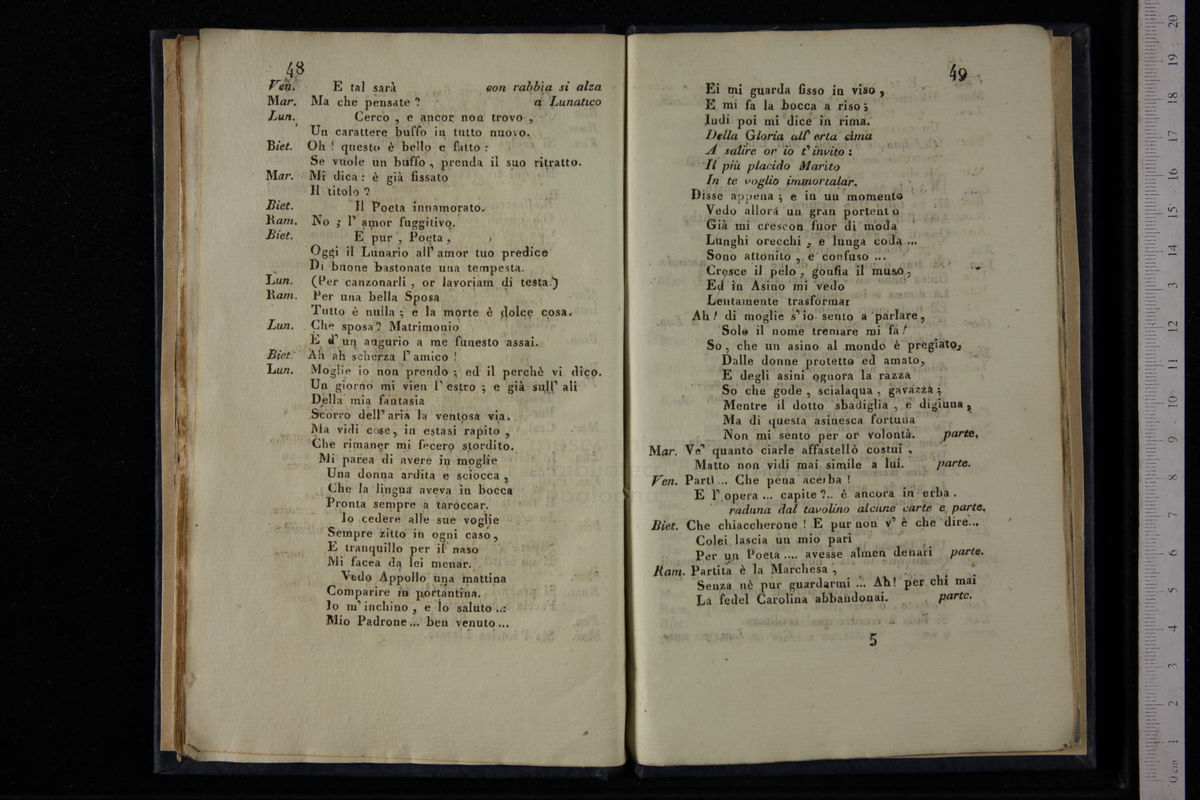 48
Ven. E tal sarà con rabbia si alza
Mar. Ma che pensate ? a Lunatico
Lun. Cerco , e ancor non trovo ,
Un carattere buffo in tutto nuovo.
Biet. Oh ! questo è bello e fatto :
Se vuole un buffo , prenda il suo ritratto.
Mar. Mi dica : è già fissato
Il titolo ?
Biet. Il Poeta innamorato.
Ram. No ; l' amor fuggitivo.
Biet. E pur , Poeta ,
Oggi il Lunario all' amor tuo predice
Di buone bastonate una tempesta.
Lun. (Per canzonarli , or lavoriam di testa.)
Ram. Per una bella Sposa
Tutto è nulla ; e la morte è dolce cosa.
Lun. Che sposa ? Matrimonio
È d' un augurio a me funesto assai.
Biet. Ah ah scherza l' amico !
Lun. Moglie io non prendo ; ed il perchè vi dico.
Un giorno mi vien l' estro ; e già sull' ali
Della mia fantasia
Scorro dell' aria la ventosa via.
Ma vidi cose, in estasi rapito ,
Che rimaner mi fecero stordito.
Mi parea di avere in moglie
Una donna ardita e sciocca ,
Che la lingua aveva in bocca
Pronta sempre a taroccar.
Io cedere alle sue voglie
Sempre zitto in ogni caso ,
E tranquillo per il naso
Mi facea da lei menar.
Vedo Appollo una mattina
Comparire in portantina.
Io m' inchino , e lo saluto ...
Mio Padrone ... ben venuto ...
49
Ei mi guarda fisso in viso ,
E mi fa la bocca a riso ;
Indi poi mi dice in rima.
Della Gloria all' erta cima
A salire or io t' invito :
Il più placido Marito
In te voglio immortalar.
Disse appena ; e in un momento
Vedo allora un gran portento
Già mi crescon fuor di moda
Lunghi orecchi , e lunga coda ...
Sono attonito , e confuso ...
Cresce il pelo , gonfia il muso ,
Ed in Asino mi vedo
Lentamente trasformar
Ah ! di moglie s' io sento a parlare ,
Solo il nome tremare mi fà !
So , che un asino al mondo è pregiato,
Dalle donne protetto ed amato,
E degli asini ognora la razza
So che gode , scialaqua , gavazza ;
Mentre il dotto sbadiglia , e digiuna ,
Ma di questa asinesca fortuna
Non mi sento per or volontà. parte.
Mar. Ve' quanto ciarle affastellò costui ,
Matto non vidi mai simile a lui. parte.
Ven. Partì ... Che pena acerba !
E l' opera ... capite ?.. è ancora in erba .
raduna dal tavolino alcune carte e parte.
Biet. Che chiaccherone ! E pur non v' è che dire...
Colei lascia un mio pari
Per un Poeta .... avesse almen denari parte.
Ram. Partita è la Marchesa ,
Senza nè pur guardarmi ... Ah ! per chi mai
La fedel Carolina abbandonai. parte.
5